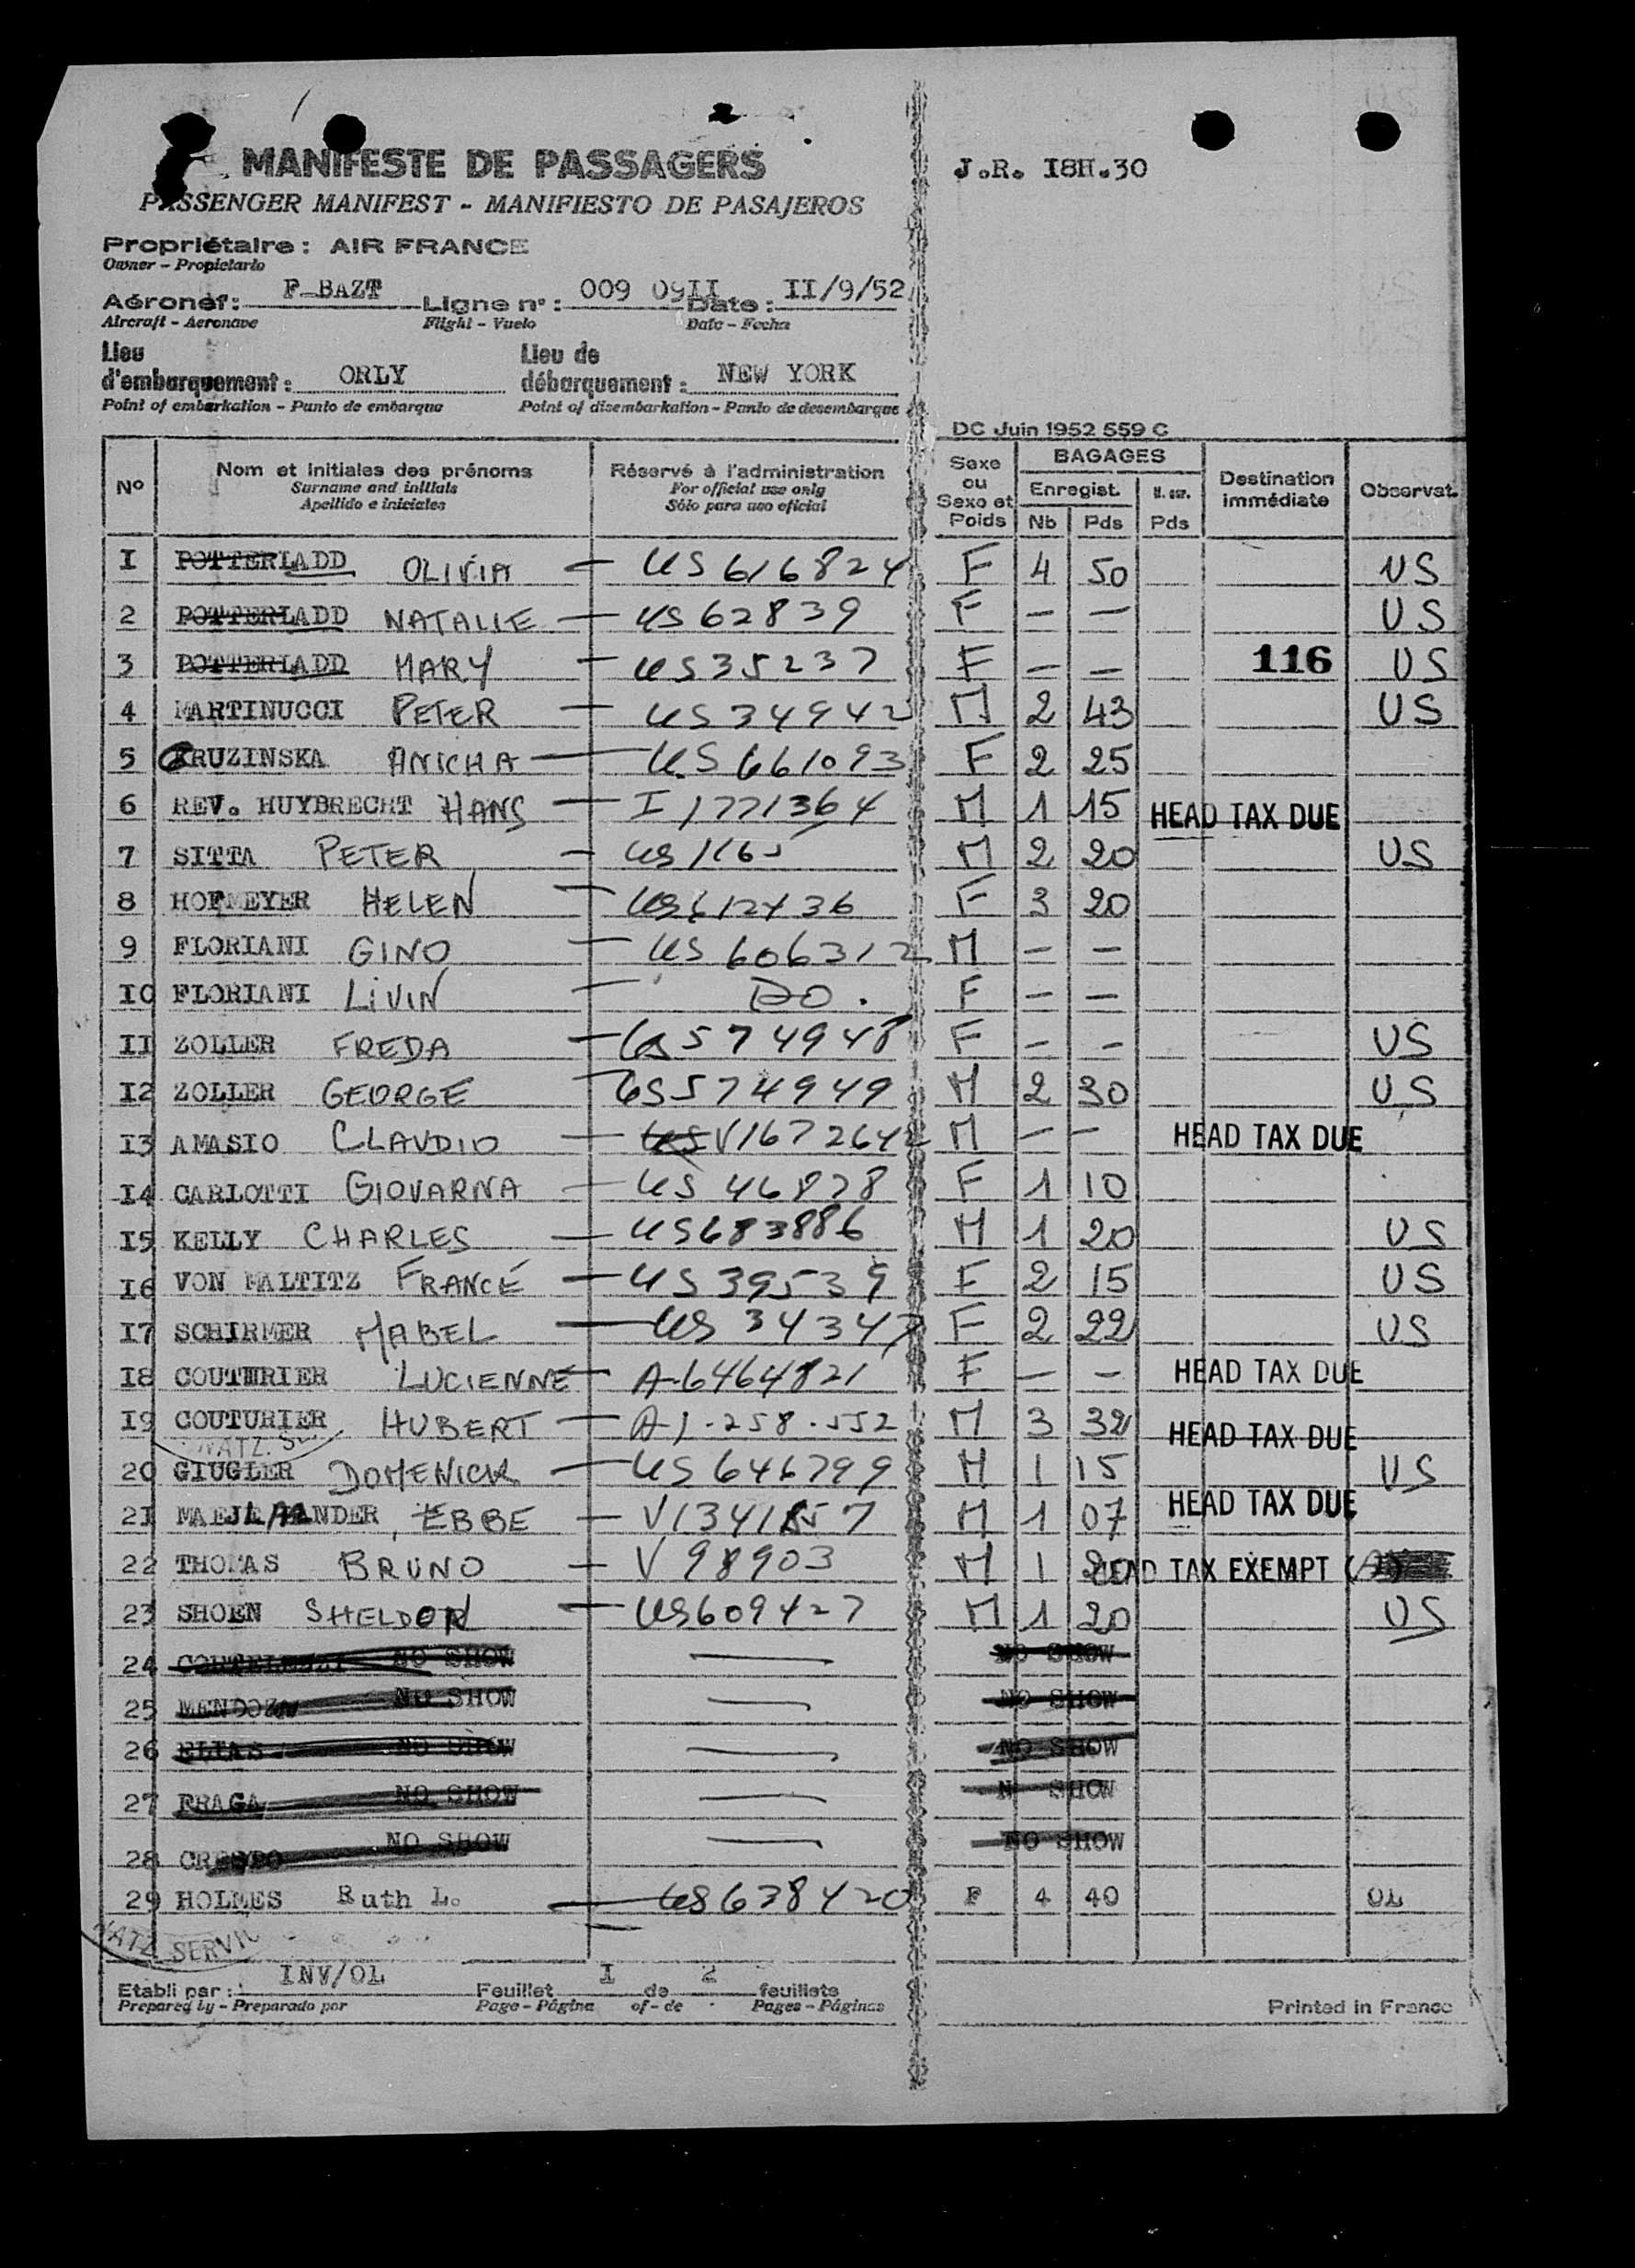 MANIFESTE DE PASSAGERS
PASSENGER MANIFEST - MANIFIESTO DE PASAJEROS
J.R. I8H.30
Propriétaire : AIR FRANCE
Owner - Propietario
Aéronef : F-BAZT Ligne n° : 009 09II Date : II/9/52
Aircraft - Aeronave Flight - Vuelo Date - Fecha
Lieu d'embarquement : ORLY Lieu de débarquement : NEW YORK
Point of embarkation - Punto de embarque Point of disembarkation - Punto de desembarque
DC Juin 1952 559 C
N° Nom et initiales des prénoms Réservé à l'administration Sexe ou Sexe et Poids BAGAGES Enregist. Nb Pds Pds Destination immédiate Observat.
Surname and initials For official use only
Apellido e iniciales Sólo para uso oficial
I POTTERLADD OLIVIA — US 616824 F 4 50 US
2 POTTERLADD NATALIE — US 62839 F — — US
3 POTTERLADD MARY — US 35237 F — — 116 US
4 MARTINUCCI PETER — US 34942 M 2 43 US
5 KRUZINSKA ANICHA — US 661093 F 2 25
6 REV. HUYBRECHT HANS — I 1771364 M 1 15 HEAD TAX DUE
7 SITTA PETER — US 1165 M 2 20 US
8 HOFMEYER HELEN — US 612436 F 3 20
9 FLORIANI GINO — US 606312 M — —
IO FLORIANI LIVIN — DO. F — —
II ZOLLER FREDA — US 574948 F — — US
I2 ZOLLER GEORGE — US 574949 M 2 30 US
I3 AMASIO CLAUDIO — US V1672642 M — — HEAD TAX DUE
I4 CARLOTTI GIOVARNA — US 46828 F 1 10
I5 KELLY CHARLES — US 683886 M 1 20 US
I6 VON MALTITZ FRANCE — US 39539 F 2 15 US
I7 SCHIRMER MABEL — US 34347 F 2 22 US
I8 COUTURIER LUCIENNE — A-6464821 F — — HEAD TAX DUE
I9 COUTURIER HUBERT — A1-258-552 M 3 32 HEAD TAX DUE
NATZ. SE
20 GIUGLER DOMENICK — US 646799 M 1 15 US
2I EBBE — V1341857 M 1 07 HEAD TAX DUE
22 THOMAS BRUNO — V 98903 M 1 HEAD TAX EXEMPT
23 SHOEN SHELDON — US 609427 M 1 20 US
24 NO SHOW — NO SHOW
25 MENDOZA NO SHOW — NO SHOW
26 ELIAS NO SHOW — NO SHOW
27 NO SHOW — SHOW
28 NO SHOW — NO SHOW
29 HOLMES Ruth L. — US 638420 F 4 40 OL
NATZ SERVIC
Etabli par : INV/OL Feuillet I de 2 feuillets
Prepared by - Preparado por Page - Página of - de Pages - Páginas
Printed in France